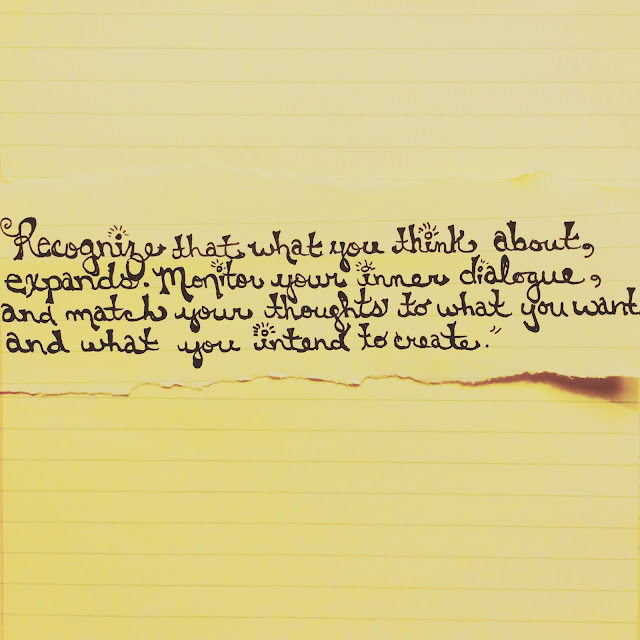 Recognize that what you think about,
expands. Monitor your inner dialogue,
and match your thoughts to what you want
and what you intend to create."